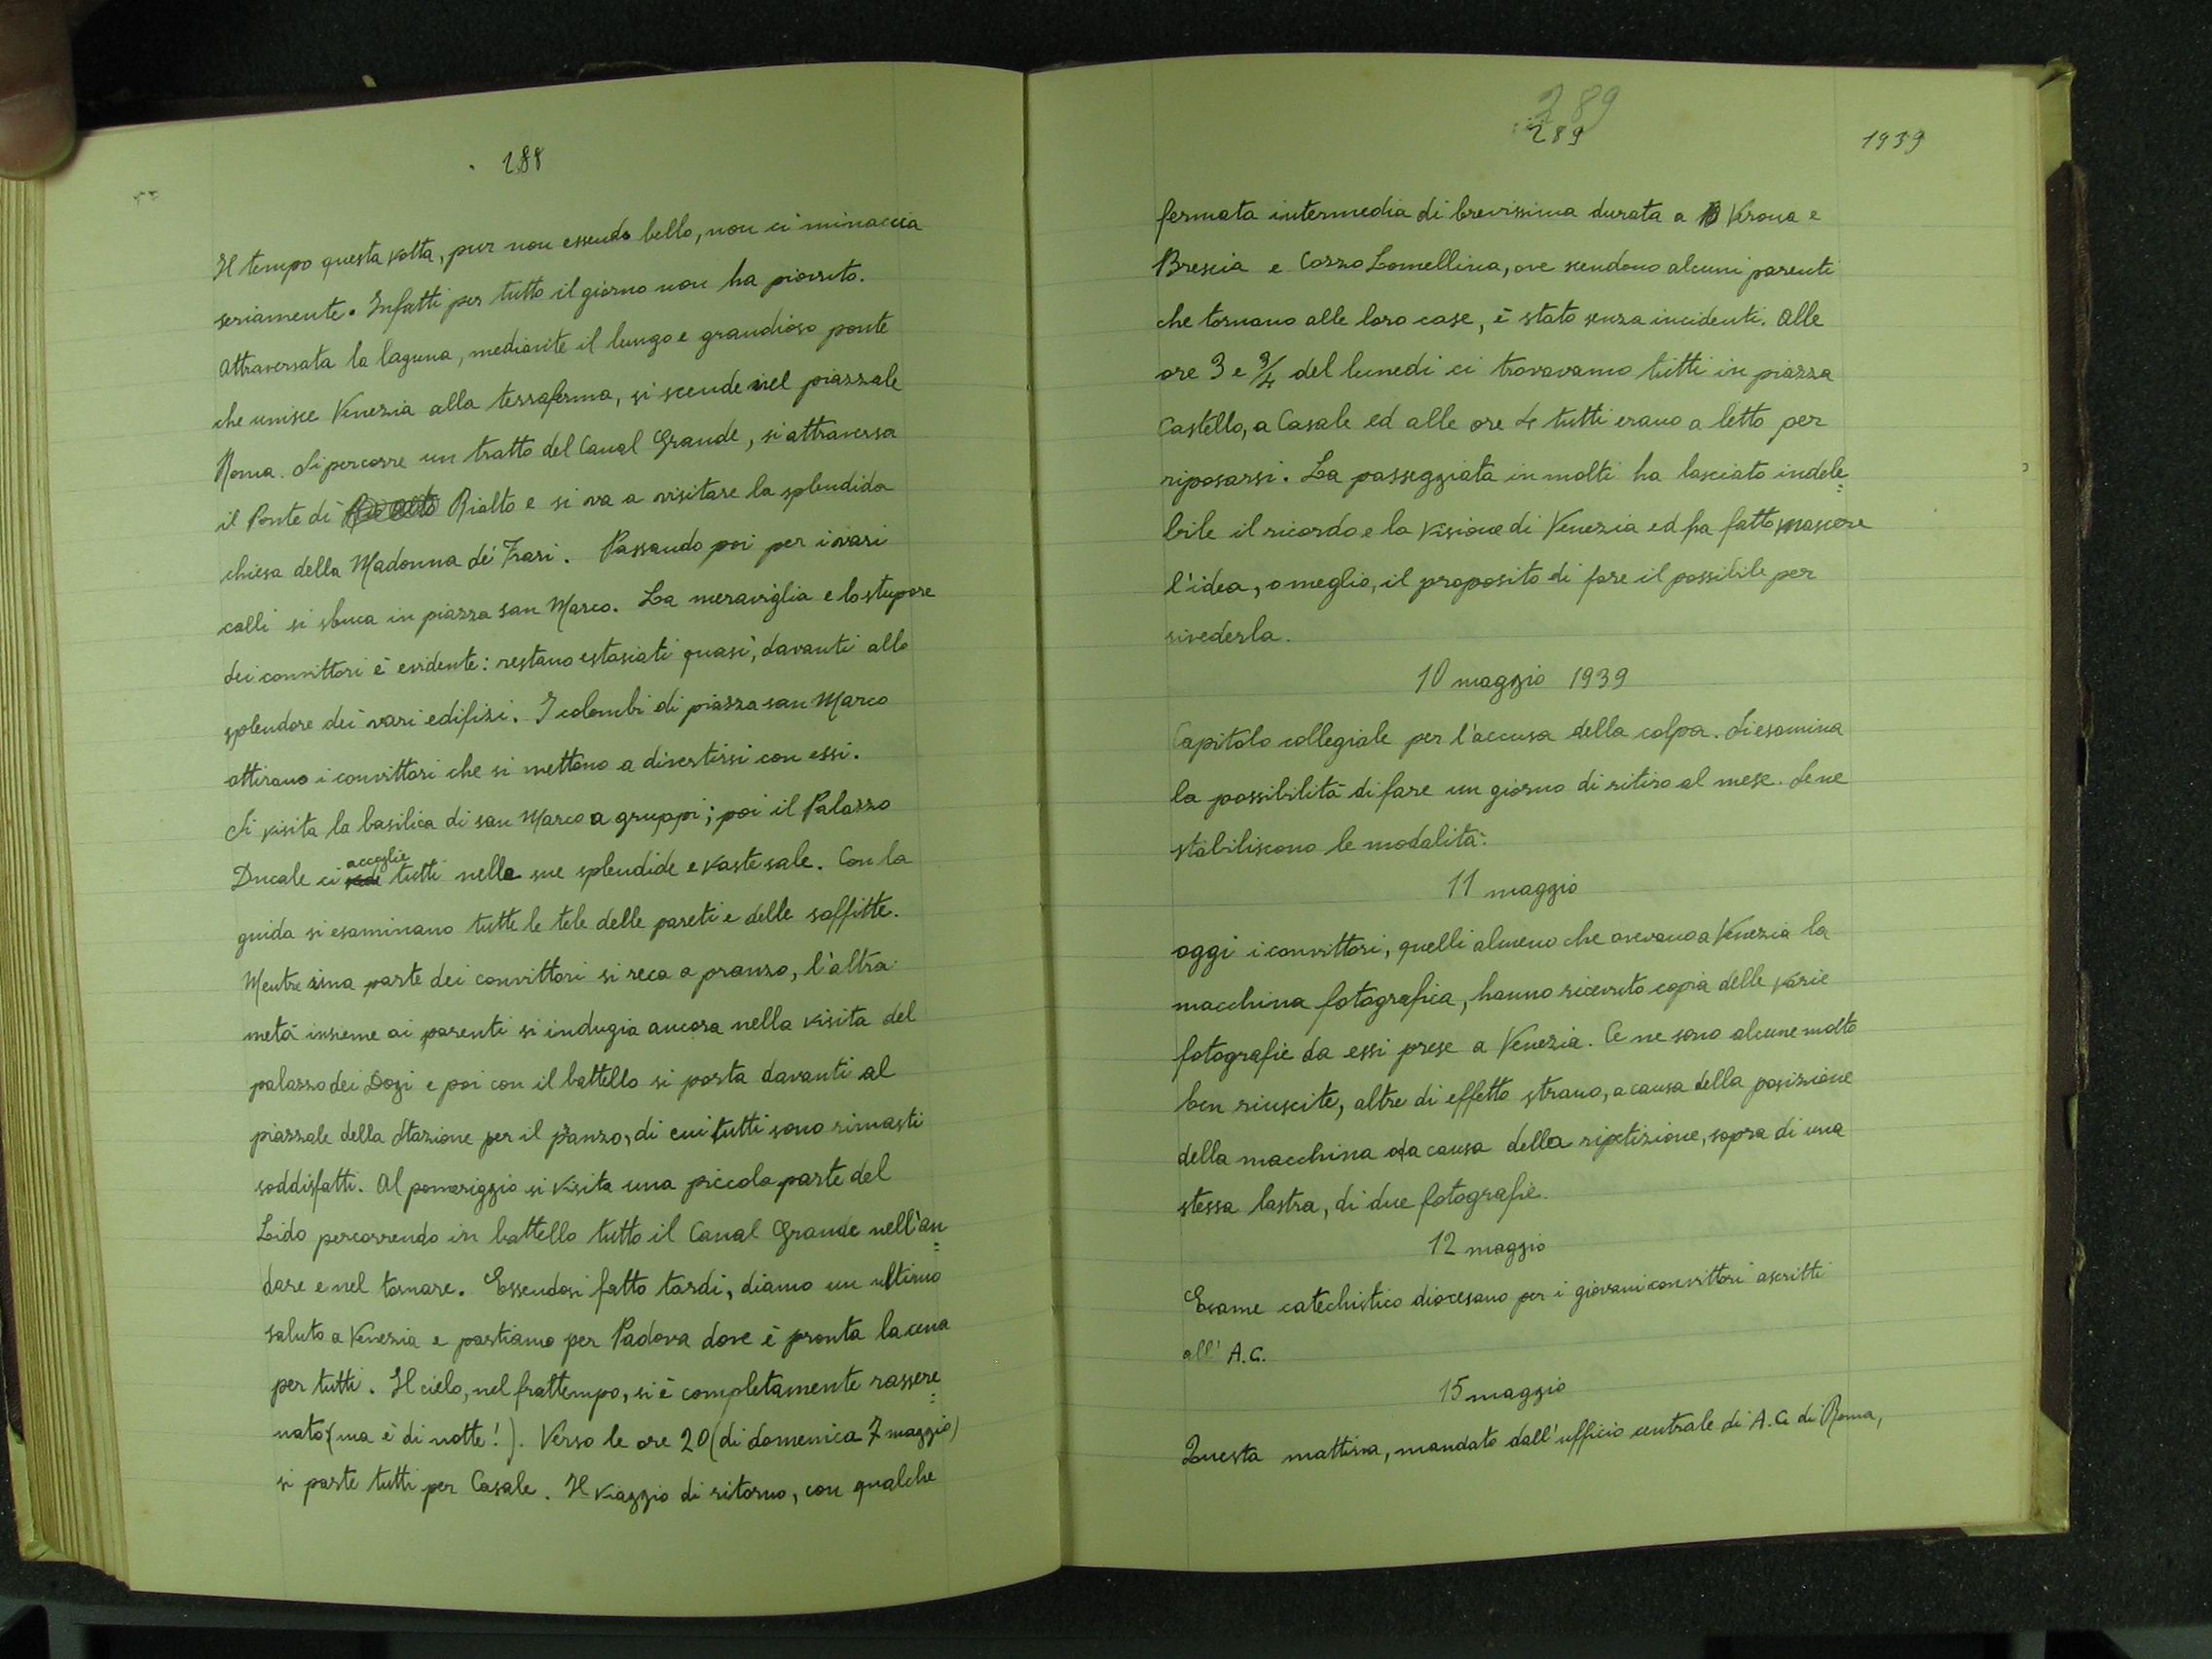 288
Il tempo questa volta, pur non essendo bello, non ci minaccia
seriamente. Infatti per tutto il giorno non ha piovuto.
Attraversata la laguna, mediante il lungo e grandioso ponte
che unisce Venezia alla terraferma, si scende nel piazzale
Roma. Si percorre un tratto del Canal Grande, si attraversa
il Ponte di Rialto e si va a visitare la splendida
chiesa della Madonna dei Frari. Passando poi per i vari
calli si sbuca in piazza san Marco. La meraviglia e lo stupore
dei convittori è evidente: restano estasiati quasi, davanti allo
splendore dei vari edifizi. I colombi di piazza san Marco
attirano i convittori che si mettono a divertirsi con essi.
Si visita la basilica di san Marco a gruppi; poi il Palazzo
Ducale ci accoglie tutti nelle sue splendide e vaste sale. Con la
guida si esaminano tutte le tele delle pareti e delle soffitte.
Mentre una parte dei convittori si reca a pranzo, l'altra
metà insieme ai parenti si indugia ancora nella visita del
palazzo dei Dogi e poi con il battello si porta davanti al
piazzale della Stazione per il pranzo, di cui tutti sono rimasti
soddisfatti. Al pomeriggio si visita una piccola parte del
Lido percorrendo in battello tutto il Canal Grande nell'an=
dare e nel tornare. Essendosi fatto tardi, diamo un ultimo
saluto a Venezia e partiamo per Padova dove è pronta la cena
per tutti. Il cielo, nel frattempo, si è completamente rassere=
nato (ma è di notte!). Verso le ore 20 (di domenica 7 maggio)
si parte tutti per Casale. Il viaggio di ritorno, con qualche
289
289
1939
fermata intermedia di brevissima durata a Verona e
Brescia e Cozzo Lomellina, ove scendono alcuni parenti
che tornano alle loro case, è stato senza incidenti. Alle
ore 3 e 3/4 del lunedì ci trovavamo tutti in piazza
Castello, a Casale ed alle ore 4 tutti erano a letto per
riposarsi. La passeggiata in molti ha lasciato indele=
bile il ricordo e la visione di Venezia ed ha fatto nascere
l'idea, o meglio, il proposito di fare il possibile per
rivederla.
10 maggio 1939
Capitolo collegiale per l'accusa della colpa. Si esamina
la possibilità di fare un giorno di ritiro al mese. Se ne
stabiliscono le modalità.
11 maggio
Oggi i convittori, quelli almeno che avevano a Venezia la
macchina fotografica, hanno ricevuto copia delle varie
fotografie da essi prese a Venezia. Ce ne sono alcune molto
ben riuscite, altre di effetto strano, a causa della posizione
della macchina o a causa della ripetizione, sopra di una
stessa lastra, di due fotografie.
12 maggio
Esame catechistico diocesano per i giovani convittori ascritti
all' A.C.
15 maggio
Questa mattina, mandato dall'ufficio centrale di A.C. di Roma,